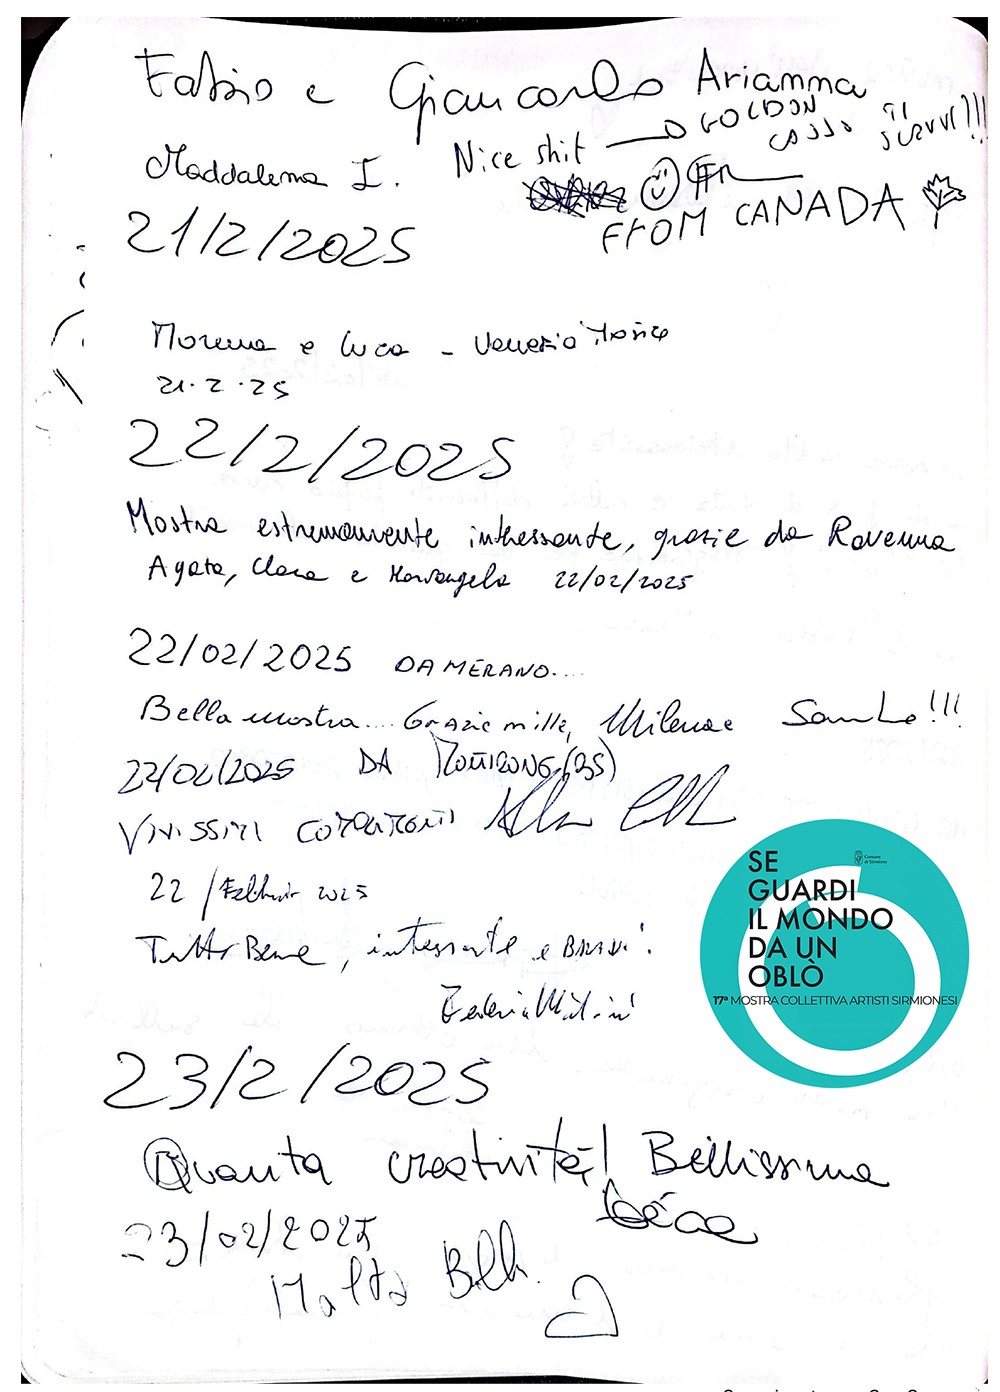 Fabio e Giancarlo Arianna
Nice shit → GOLDON
Maddalena I.
FrOM CANADA
21/2/2025
Morena e Luca - Venezia
21.2.25
22/2/2025
Mostra estremamente intressante, grazie da Ravenna
Agata, Clara e Mariangela 22/02/2025
22/02/2025 DA MERANO....
Bella mostra.... Grazie mille, Milena e Sandro!!!
22/02/2025 DA (BS)
VIVISSIMI COMPLIMENTI
22 / Febbraio 2025
Tutto Bene, intessante e BRAVI!
SE
GUARDI
IL MONDO
DA UN
OBLÒ
Comune
di Sirmione
17ª MOSTRA COLLETTIVA ARTISTI SIRMIONESI
23/2/2025
Quanta creatività! Bellissima
idea
23/02/2025
Molto Bello